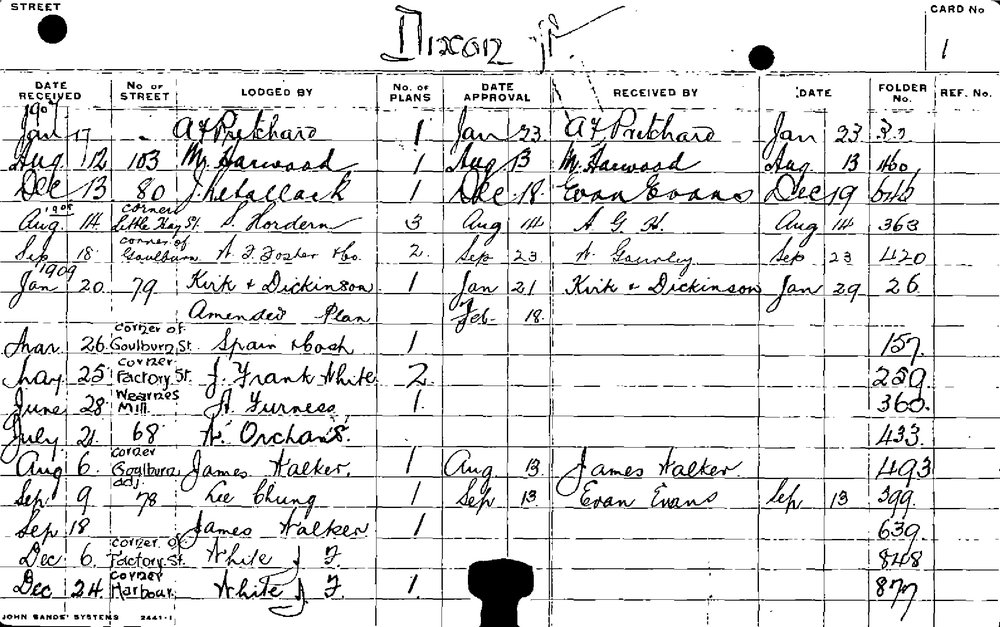 STREET
Dixon St.
CARD No
1
DATE RECEIVED No of STREET LODGED BY No. of PLANS DATE APPROVAL RECEIVED BY DATE FOLDER No. REF. No.
1907
Jan 17 - A F Pritchard 1 Jan 23 A F Pritchard Jan 23 32
Aug 12 103 M. Harwood 1 Aug 13 M. Harwood Aug 13 460
Dec 13 80 J. Kelallack 1 Dec 18. Evan Evans Dec 19
1908
Aug. 14. corner Little Hay St. S. Hordern 3 Aug 14 A G H. Aug 14 363
Sep 18. corner of Goulburn A J Foster & Co. 2. Sep 23 A. Gourley Sep 23 420
1909
Jan 20 79 Kirk & Dickinson 1 Jan 21 Kirk & Dickinson Jan 29 26
Amended Plan Feb. 18.
Mar. 26. corner of Goulburn St. Spain & Cosh 1 157.
May 25 corner Factory St. J. Frank White 2. 259.
June 28. Wearnes Mill. A. Furness 1. 360.
July 21. 68 A. 433.
Aug 6. corner Goulburn James Walker. 1 Aug 13 James Walker 493
Sep 9 adj. 78 Lee Chung 1 Sep 13 Evan Evans Sep 13 399.
Sep 18 James Walker 1 639.
Dec 6. corner of Factory St. White J F. 848
Dec 24. corner Harbour. White J F. 1. 877
JOHN SANDS' SYSTEMS 2441-1